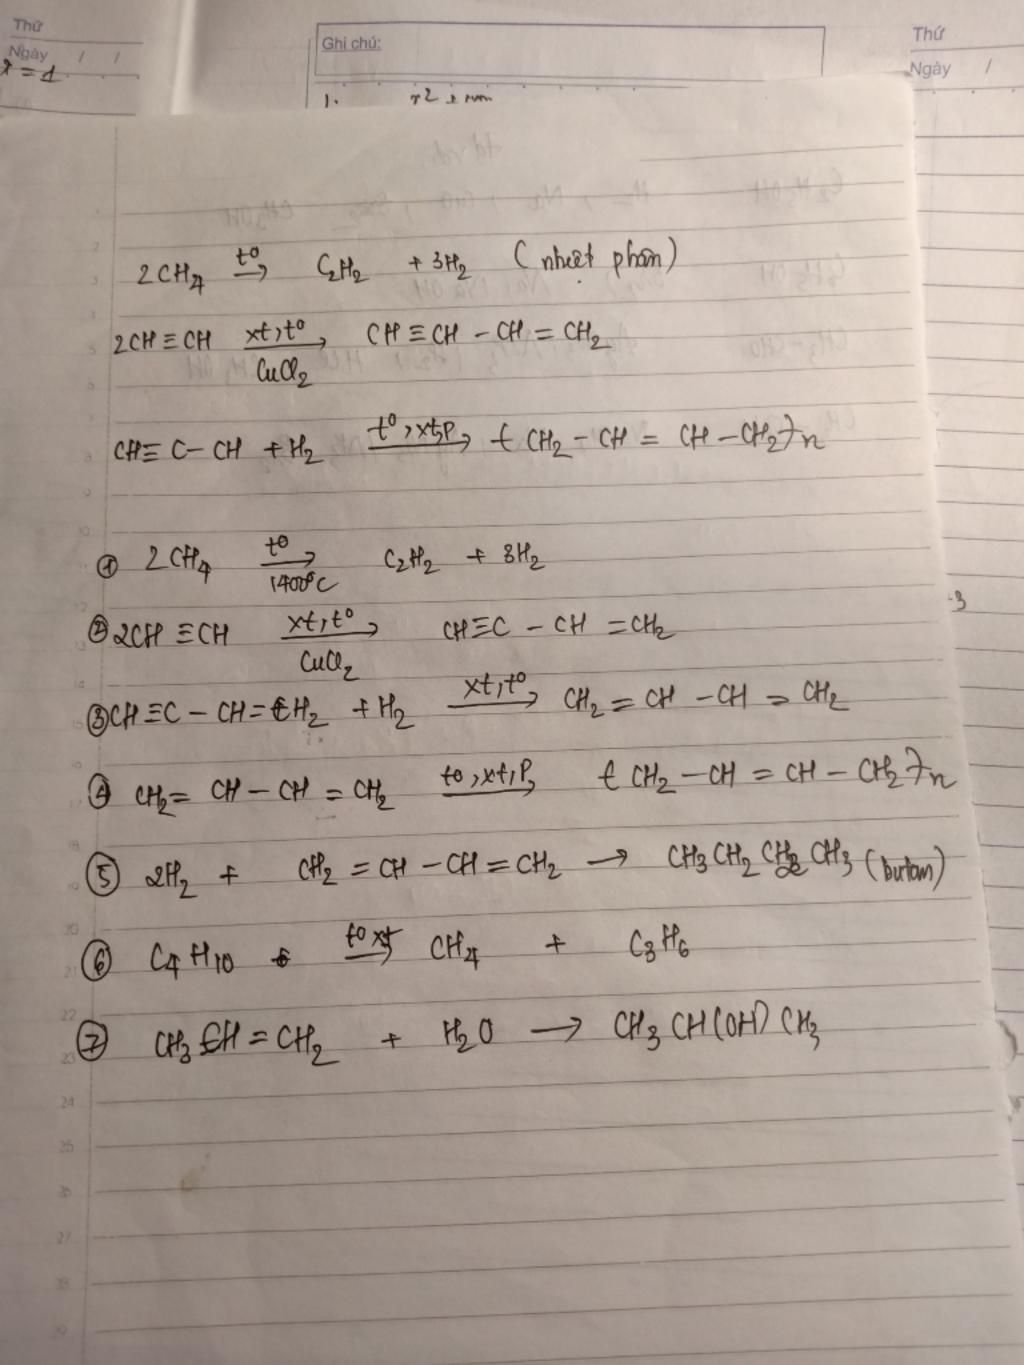 Thứ
Ngày / /
x = 1
Ghi chú:
1.
Thứ
Ngày /
2CH4 t° → C2H2 + 3H2 (nhiệt phân)
2CH ≡ CH xt, t° → CuCl2 CH ≡ CH - CH = CH2
CH ≡ C - CH + H2 t°, xt, P → ( CH2 - CH = CH - CH2 )n
① 2CH4 t° → 1400°C C2H2 + 3H2
② 2CH ≡ CH xt, t° → CuCl2 CH ≡ C - CH = CH2
③ CH ≡ C - CH = CH2 + H2 xt, t° → CH2 = CH - CH = CH2
④ CH2 = CH - CH = CH2 t°, xt, P → ( CH2 - CH = CH - CH2 )n
⑤ 2H2 + CH2 = CH - CH = CH2 → CH3 CH2 CH2 CH3 (butan)
⑥ C4H10 t° xt → CH4 + C3H6
⑦ CH3 CH = CH2 + H2O → CH3 CH(OH) CH3